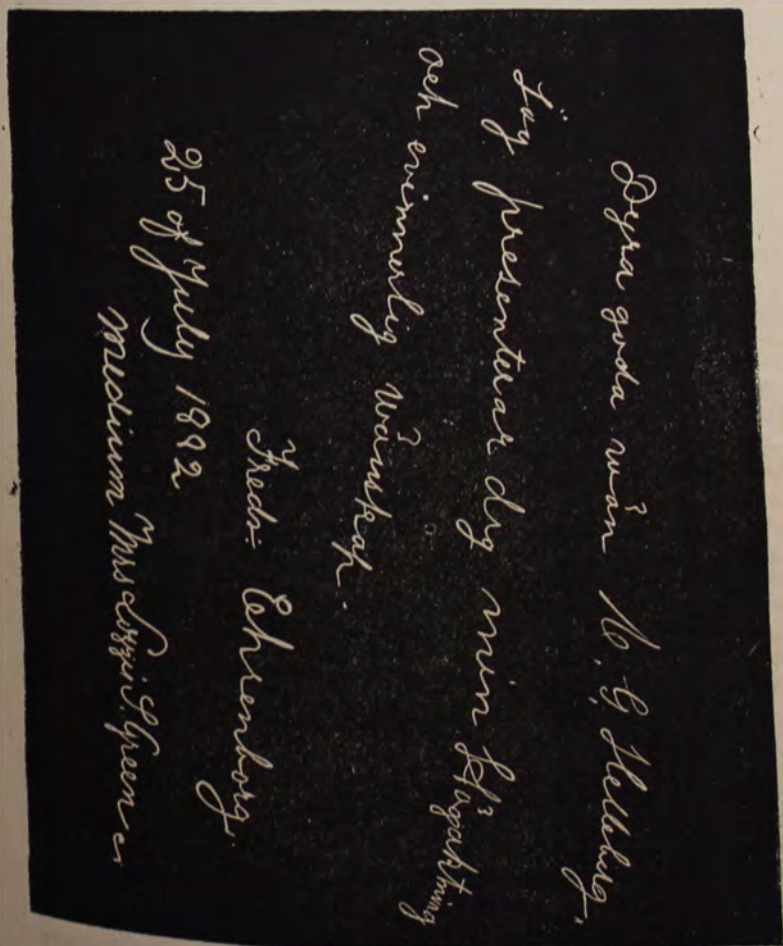 Dyra goda wån C. G. Helleberg.
Jag presenterar dig min Högaktning
och evinnerlig wånskap.
Fredr. Ehrenborg.
25 of July 1892
medium Mrs Lizzie S. Green